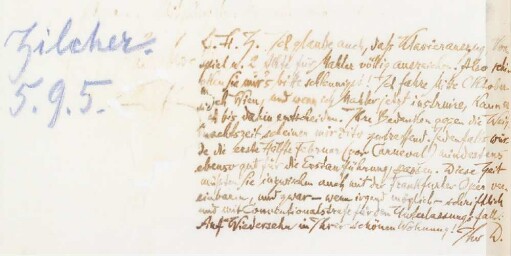 Zilcher.
5.9.5.
L. H. Z. Ich glaube auch, dass Klavierauszug Vor-
spiel u. 2. Akt für Mahler völlig ausreichen. Also schi-
cken Sie mir's bitte schleunigst! Ich fahre Mitte Oktober
nach Wien, und wenn ich Mahler jetzt instruire, kann er
sich bis dahin entscheiden. Ihre Bedenken gegen die Weih-
nachtszeit scheinen mir sehr zutreffend; jedenfalls wür-
de die erste Hälfte Februar (vor Carneval!) mindestens
ebenso gut für die Erstaufführung passen. Diese Zeit
müssten Sie inzwischen auch mit der Frankfurter Oper ver-
einbaren, und zwar – wenn irgend möglich – schriftlich
und mit Conventionalstrafe für den Unterlassungsfall.
Auf Wiedersehn in Ihrer schönen Wohnung! Ihr D.